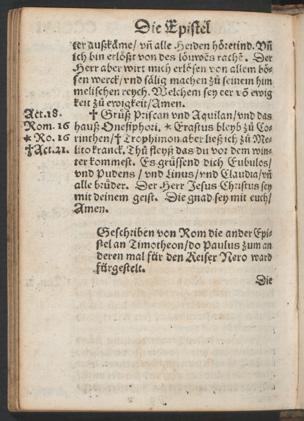 Die Epistel
ter außkäme/ vñ alle Heiden höretind. Vñ
ich bin erlößt von des löuwẽs rachẽ. Der
Herr aber wirt mich erlösen von allem bö-
sen werck/ vnd sälig machen zů seinem him
melischen reych. Welchem sey eer võ ewig
keit zů ewigkeit/ Amen.
Act.18.
✝ Grüß Priscan vnd Aquilan/ vnd das
Rom. 16
hauß Onesiphori. * Erastus bleyb zů Co-
* Ro. 16
rinthen/ ✝ Trophimon aber ließ ich zů Me-
✝ Act.21.
lito kranck. Thů fleyß das du vor dem win-
ter kommest. Es grüssend dich Eubolos/
vnd Pudens / vnd Linus/ vnd Claudia/ vñ
alle brüder. Der Herr Jesus Christus sey
mit deinem geist. Die gnad sey mit euch/
Amen.
Geschriben von Rom die ander Epi-
stel an Timotheon/ do Paulus zum an
deren mal für den Keiser Nero ward
fürgestelt.
Die